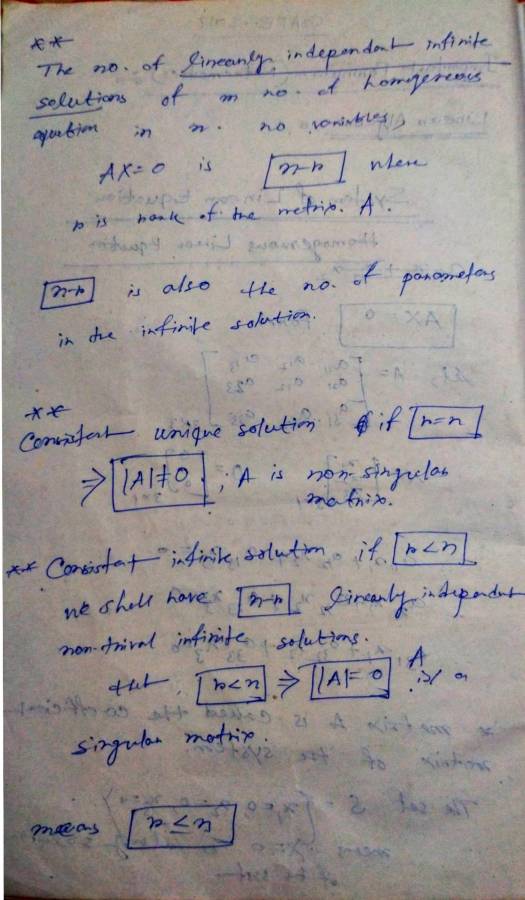 **
The no. of linearly independent infinite
solutions of m no. of homogeneous
equation in n. no. variables,
AX=0 is n-r where
r is rank of the metrix. A.
n-r is also the no. of parameters
in the infinite solution.
**
Consistent unique solution if r=n
⇒ |A|≠0 ; A is non-singular
matrix.
** Consistent infinite solution if r<n
we shall have n-r linearly independent
non-trival infinite solutions.
that, r<n ⇒ |A|=0 A is a
singular matrix.
means r≤n